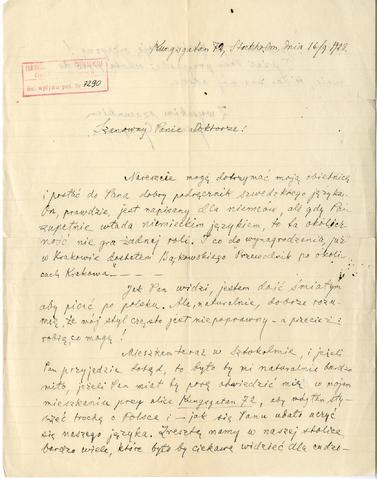 Kungsgatan 72, Stockholm, dnia 16/9 1922.
1290
Szanowny Panie Doktorze!
Nareszcie mogę dotrzymać moją obietnicę
i posłać do Pana dobry podręcznik szwedzkiego języka.
On, prawdzie, jest napisany dla niemców, ale gdy Pan
zupełnie włada niemieckiem językiem, to ta okolicz-
ność nie gra żadnej roli. I co do wynagrodzenia, już
w Krakowie dostałem Bąkowskiego Przewodnik po okoli-
cach Krakowa
Jak Pan widzi, jestem dość śmiałym
aby pisać po polsku. Ale, naturalnie, dobrze rozu-
mię, że mój styl często jest niepoprawny - a przecież:
robię co mogę!
Mieszkam teraz w Sztokolmie, i jeżeli
Pan przyjedzie dotąd, to było by mi naturalnie bardzo
miło, jeżeli Pan miał by porę odwiedzić mię w mojem
mieszkaniu przy ulice Kungsgatan 72, aby módz usły-
szeć trochę o Polsce i - jak się Panu udało uczyć
się naszego języka. Zresztą mamy w naszej stolice
bardzo wiele, które było by ciekawą widzieć dla cudzo-